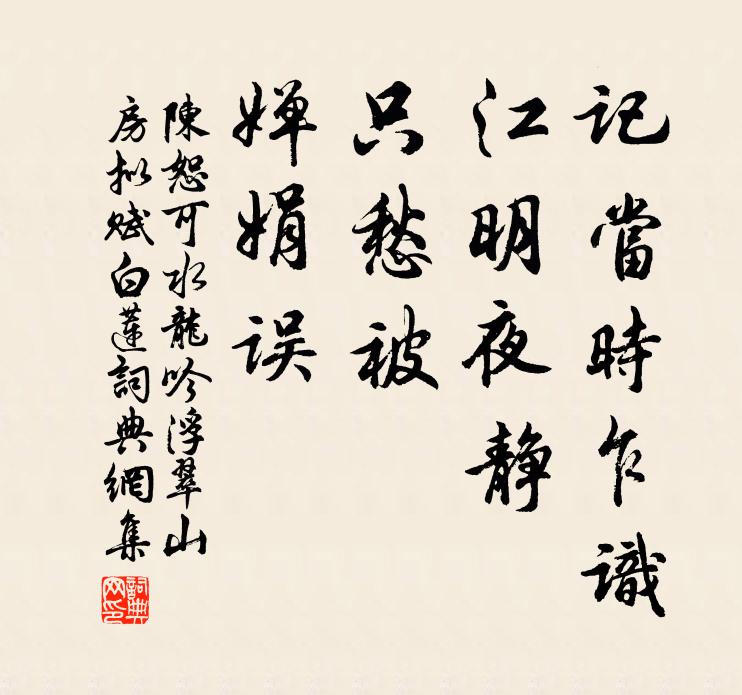 記當時乍識
江明夜静
只愁被
嬋娟误
陳恕可水龍吟浮翠山
房拟赋白蓮詞典網集
詞典
网印